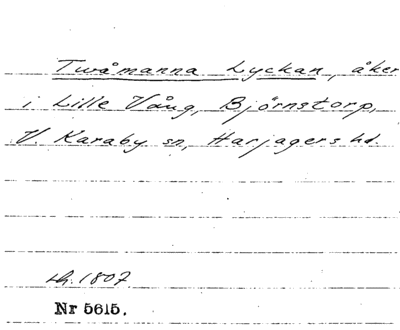 Twåmanna Lyckan, åker
i Lille Våug, Björnstorp,
V. Karaby sn, Harjagers hd.
Lh. 1807.
Nr 5615.